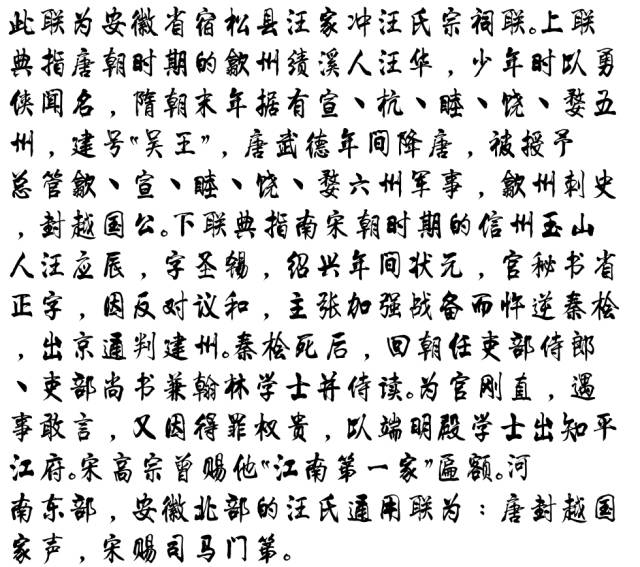 此联为安徽省宿松县汪家冲汪氏宗祠联。上联
典指唐朝时期的歙州绩溪人汪华，少年时以勇
侠闻名，隋朝末年据有宣、杭、睦、饶、婺五
州，建号“吴王”，唐武德年间降唐，被授予
总管歙、宣、睦、饶、婺六州军事，歙州刺史
，封越国公。下联典指南宋朝时期的信州玉山
人汪应辰，字圣锡，绍兴年间状元，官秘书省
正字，因反对议和，主张加强战备而忤逆秦桧
，出京通判建州。秦桧死后，回朝任吏部侍郎
、吏部尚书兼翰林学士并侍读。为官刚直，遇
事敢言，又因得罪权贵，以端明殿学士出知平
江府。宋高宗曾赐他“江南第一家”匾额。河
南东部，安徽北部的汪氏通用联为：唐封越国
家声，宋赐司马门第。